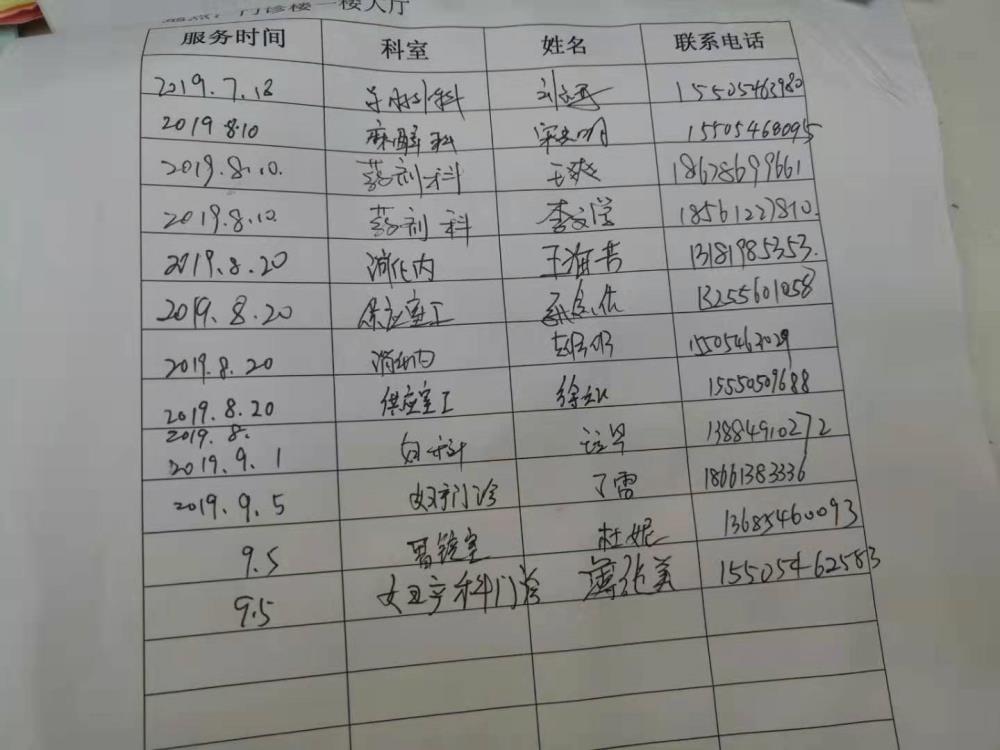 地点：门诊楼一楼大厅
服务时间 科室 姓名 联系电话
2019.7.18 15505463980
2019 8.10 麻醉科 15505468095
2019.8.10. 药剂科 王爽 18678699661
2019.8.10 药剂科 李文学 18561227810.
2019.8.20 消化内 王海芳 13181985353.
2019.8.20 供应室工 13255601058
2019.8.20 消化内 15505463029
2019.8.20 供应室工 15550509688
2019.8.
2019.9.1 妇科 13884910272
2019.9.5 妇产门诊 丁雷 18661383336
9.5 胃镜室 杜妮 13685460093
9.5 妇产科门诊 15505462583